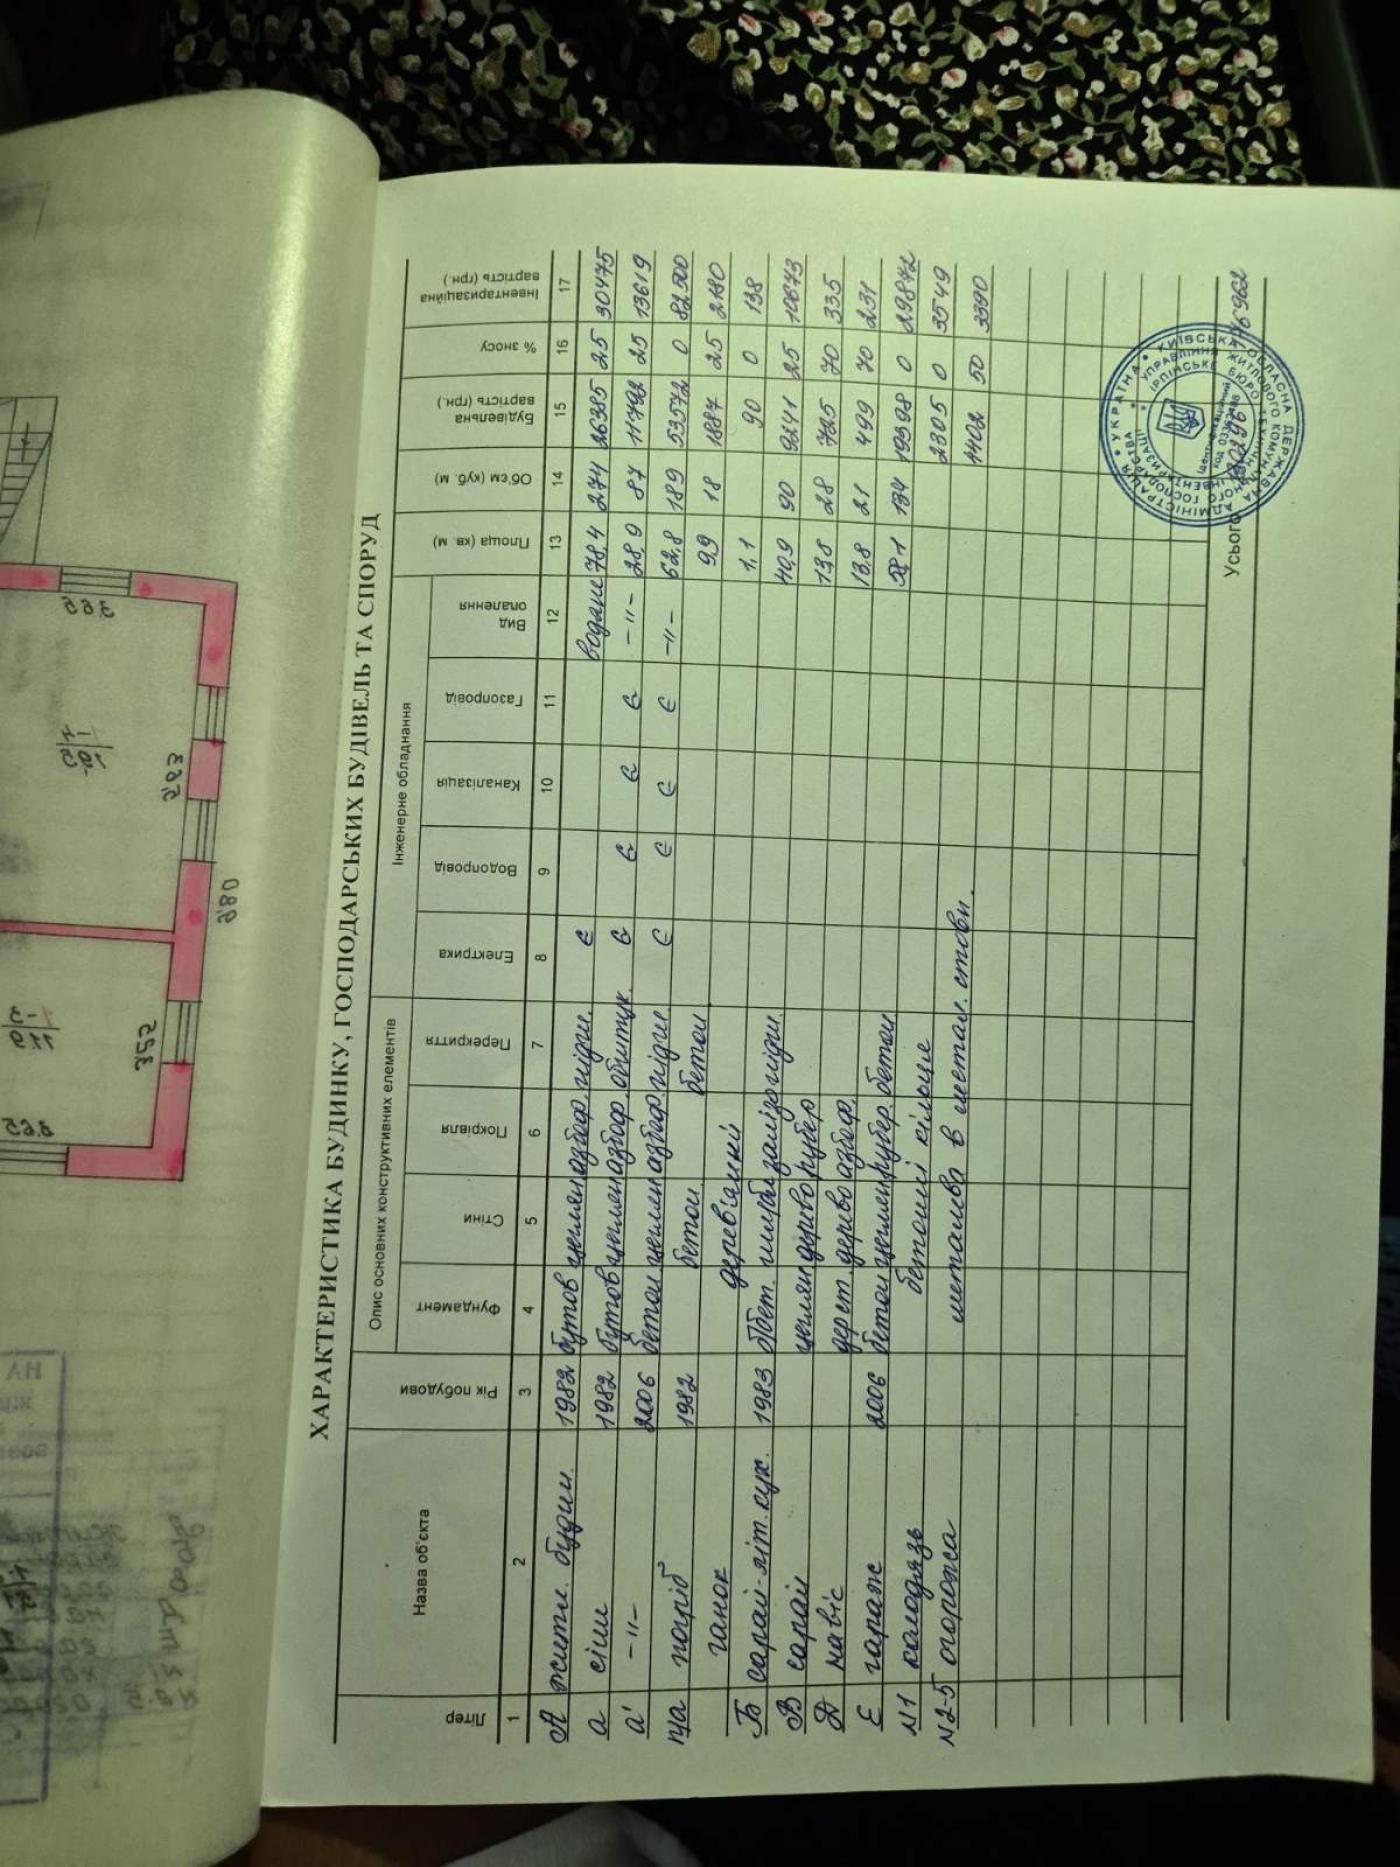 ХАРАКТЕРИСТИКА БУДИНКУ, ГОСПОДАРСЬКИХ БУДІВЕЛЬ ТА СПОРУД
Літер
Назва об'єкта
Рік побудови
Опис основних конструктивних елементів
Фундамент
Стіни
Покрівля
Перекриття
Інженерне обладнання
Електрика
Водопровід
Каналізація
Газопровід
Вид опалення
Площа (кв. м)
Об'єм (куб. м)
Будівельна вартість (грн.)
% зносу
Інвентаризаційна вартість (грн.)
1 2 3 4 5 6 7 8 9 10 11 12 13 14 15 16 17
А житл. будин. 1982 бутов цеглян азбоф. підш. є водяне 78,4 274 26385 25 30475
а сіни 1982 бутов цеглян азбоф. обштук. є є є є -"- 28,9 87 11792 25 13619
а' -"- 2006 бетон цеглян азбоф. підш. є є є є -"- 62,8 189 53572 0 82500
п/а погріб 1982 бетон бетон 9,9 18 1887 25 2180
ганок дерев'яний 1,1 90 0 138
Б сарай-літ. кух. 1983 б/бет. шлакобл залізо підш. 40,9 90 9241 25 10673
В сарай цеглян дерево рубер 13,8 28 725 70 335
Д навіс дер.ст. дерево азбоф. 13,8 21 499 70 231
Е гараж 2006 бетон цеглян рубер. бетон 134 19398 0 29872
N1 колодязь бетонні кільця 2305 0 3549
N2-5 огорожа металева в метал. стовп. 4402 50 3390
Усього
УКРАЇНА
КИЇВСЬКА ОБЛАСНА ДЕРЖАВНА АДМІНІСТРАЦІЯ
УПРАВЛІННЯ ЖИТЛОВОГО КОМУНАЛЬНОГО ГОСПОДАРСТВА
ІРПІНСЬКЕ БЮРО ТЕХНІЧНОЇ ІНВЕНТАРИЗАЦІЇ
Ідентифікаційний код
3,65
5,83
9,80
3,25
3,65
1-3
11,9